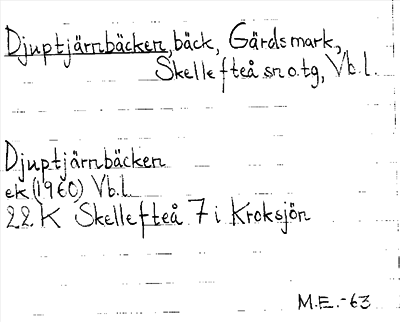 Djuptjärnbäcken, bäck, Gärdsmark,
Skellefteå sn o. tg, Vb. l.
Djuptjärnbäcken
ek (1960) Vb. l.
22 K Skellefteå 7 i Kroksjön
M.E.-63